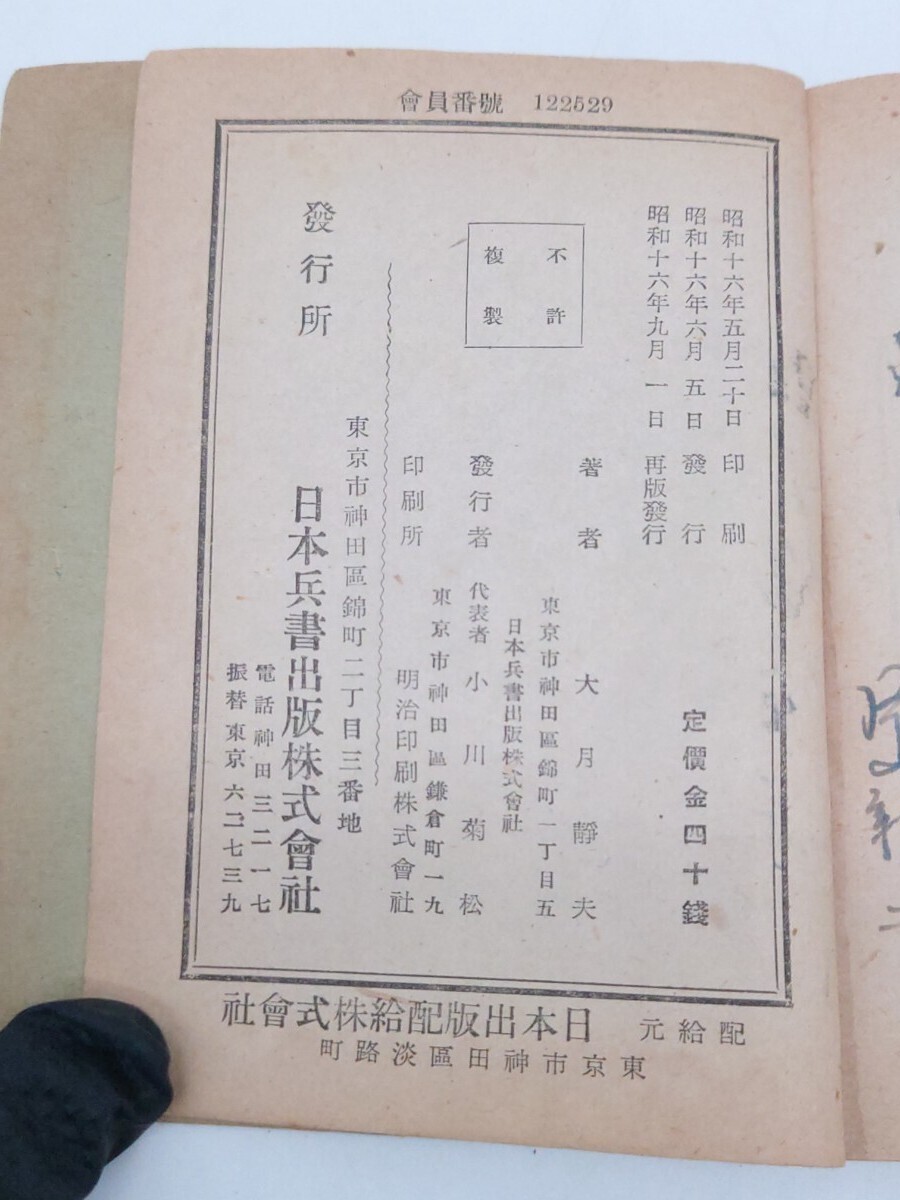 會員番號 122529
昭和十六年五月二十日 印刷
昭和十六年六月五日 發行
昭和十六年九月一日 再版發行
定價金四十錢
不許
複製
著者 大月靜夫
東京市神田區錦町一丁目五
日本兵書出版株式會社
發行者 代表者 小川菊松
東京市神田區鎌倉町一九
印刷所 明治印刷株式會社
東京市神田區錦町二丁目三番地
發行所 日本兵書出版株式會社
電話神田三二一七
振替東京六二七三九
配給元 日本出版配給株式會社
東京市神田區淡路町